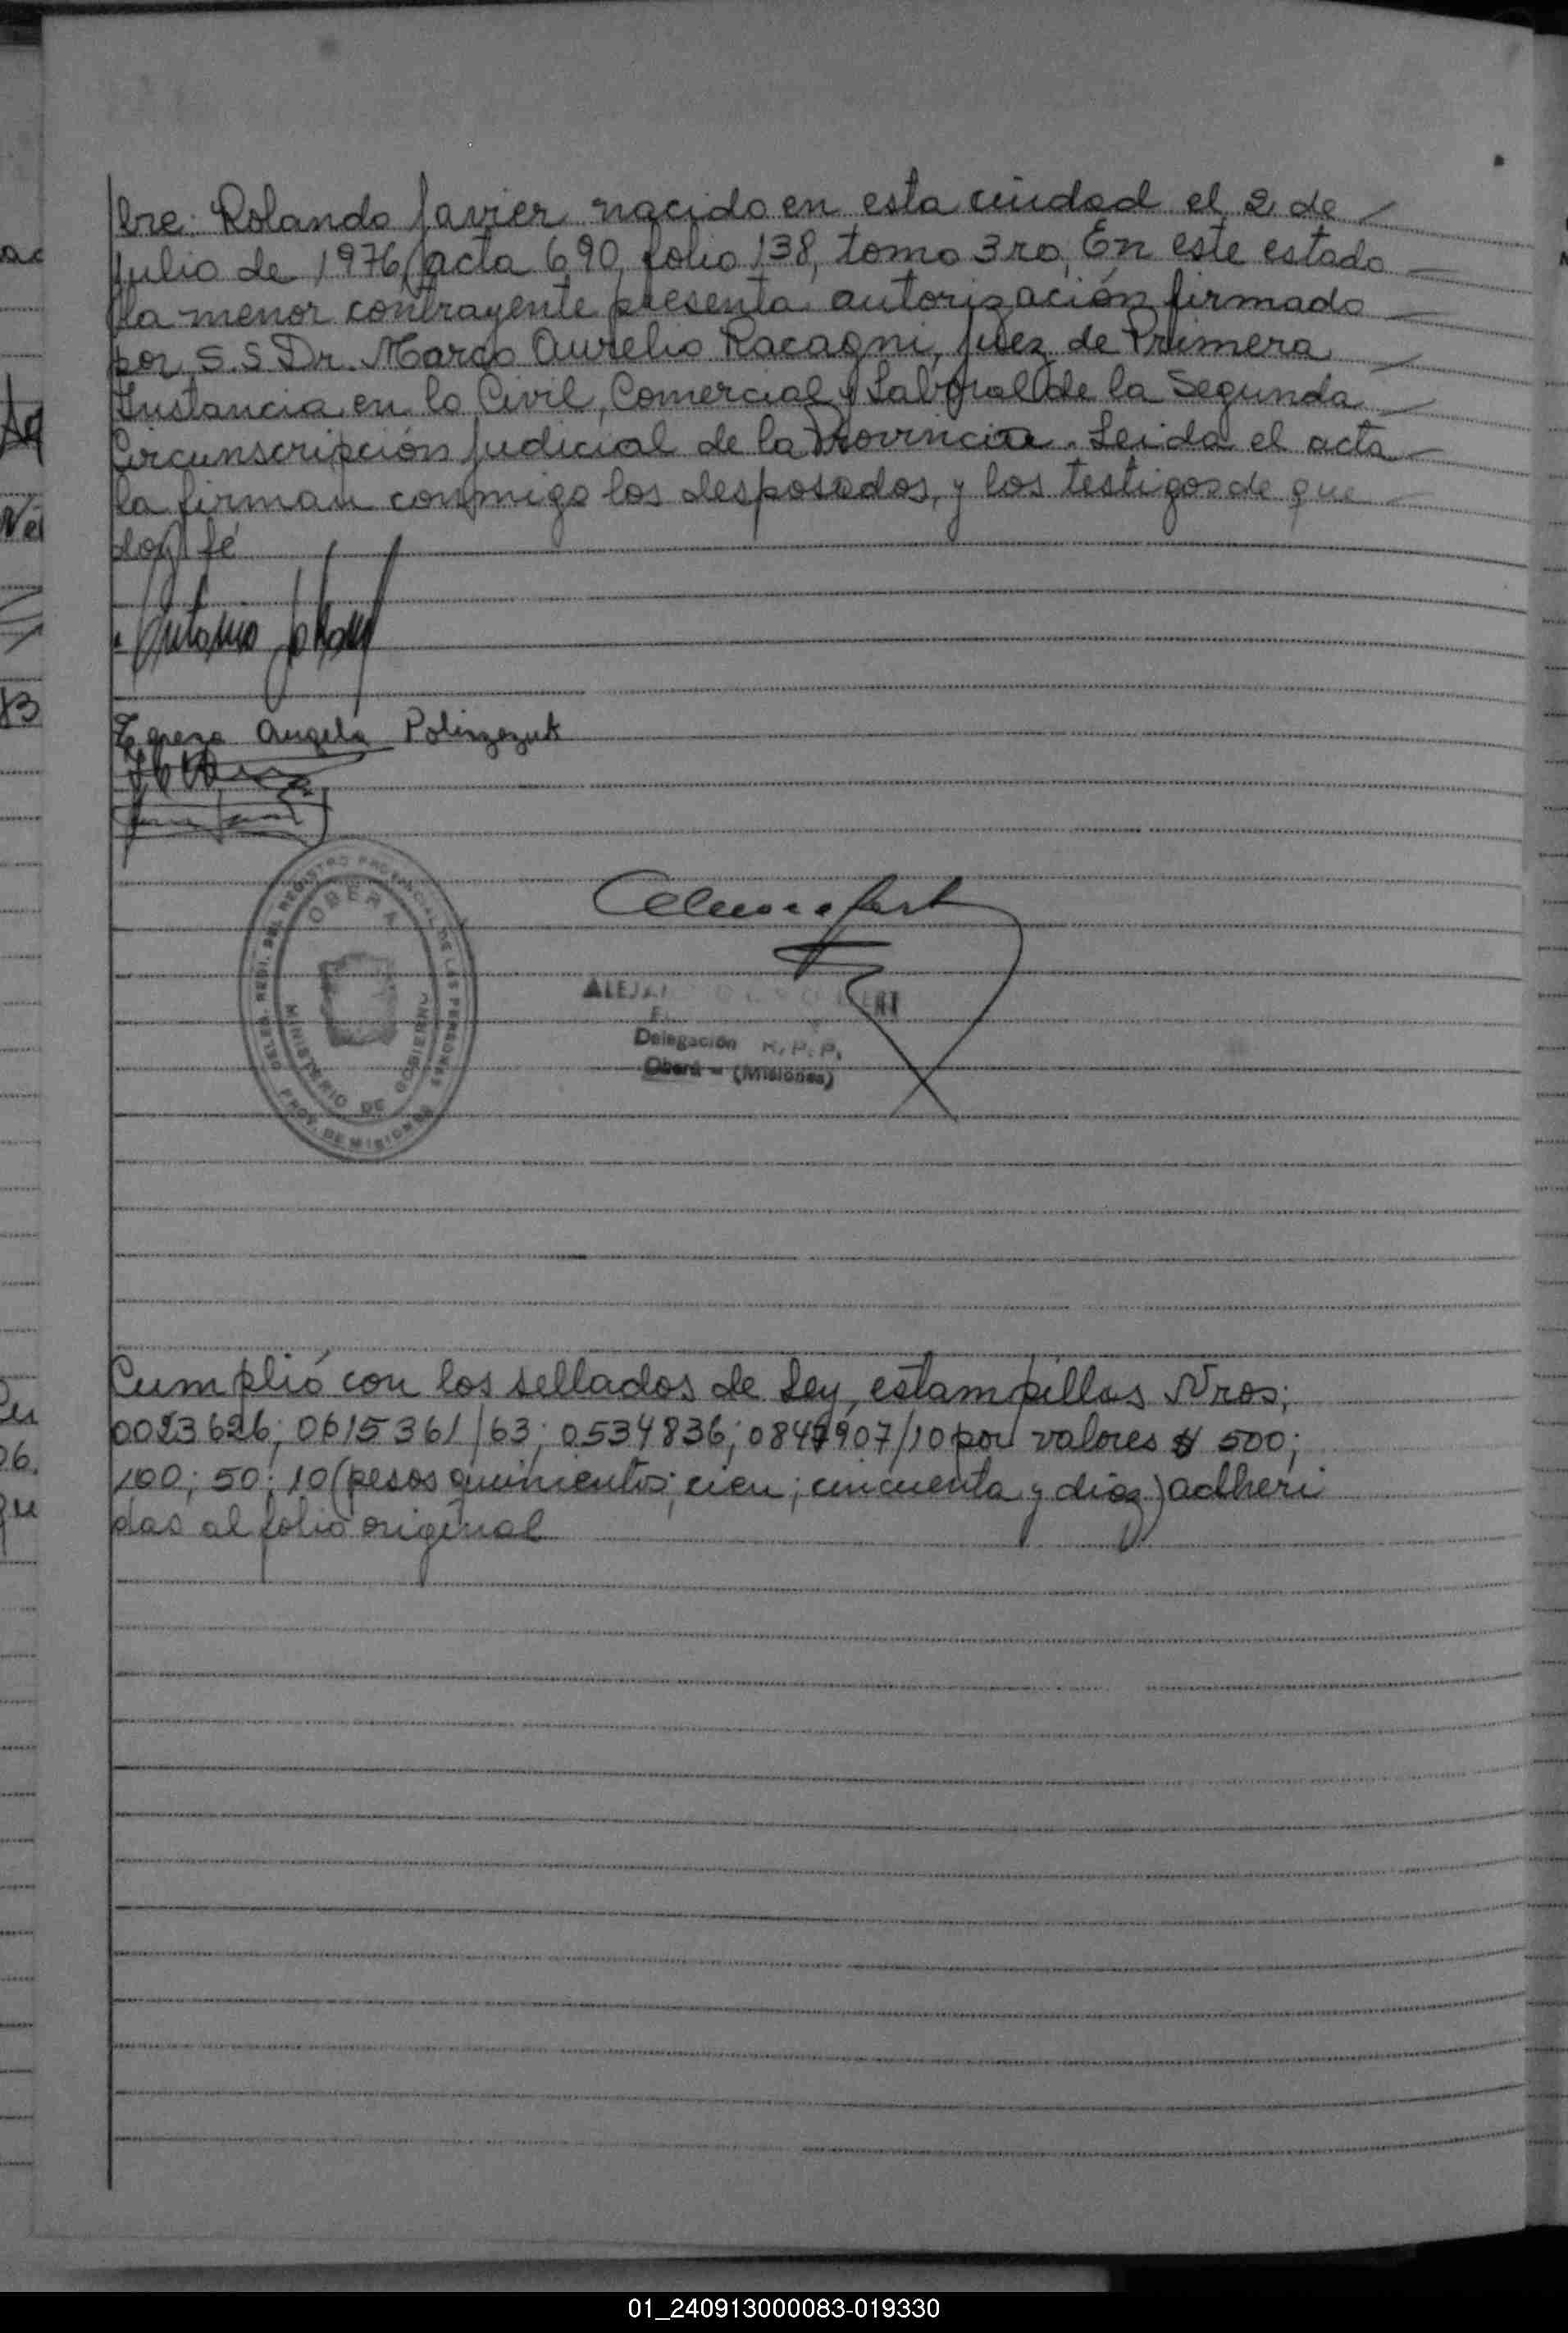 bre: Rolando Javier nacido en esta ciudad el 2 de
Julio de 1976, acta 690, folio 138, tomo 3ro, En este estado
la menor contrayente presenta autorización firmado
por S.S Dr. Marco Aurelio Racagni, Juez de Primera
Instancia en lo Civil, Comercial y Laboral de la Segunda
Circunscripción Judicial de la Provincia. Leida el acta
la firman conmigo los desposados, y los testigos de que
doy fé
Antonio
Angela Poliszezuk
DELEG. REGI. DEL REGISTRO PROVINCIAL DE LAS PERSONAS
OBERA
MINISTERIO DE GOBIERNO
PROV. DE MISIONES
Delegación R.P.P.
Oberá - (Misiones)
Cumplió con los sellados de Ley, estampillas Nros;
0023626; 0615361/63; 0534836; 0847907/10 por valores $ 500;
100; 50; 10 (pesos quinientos; cien; cincuenta y diez) adheri
das al folio original
01_240913000083-019330